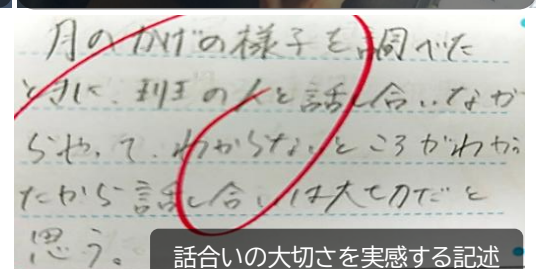 月のかげの様子を調べた
ときに、班の人と話し合いなが
らやって、わからないところがわかっ
たから話し合いは大切だと
思う。
話合いの大切さを実感する記述